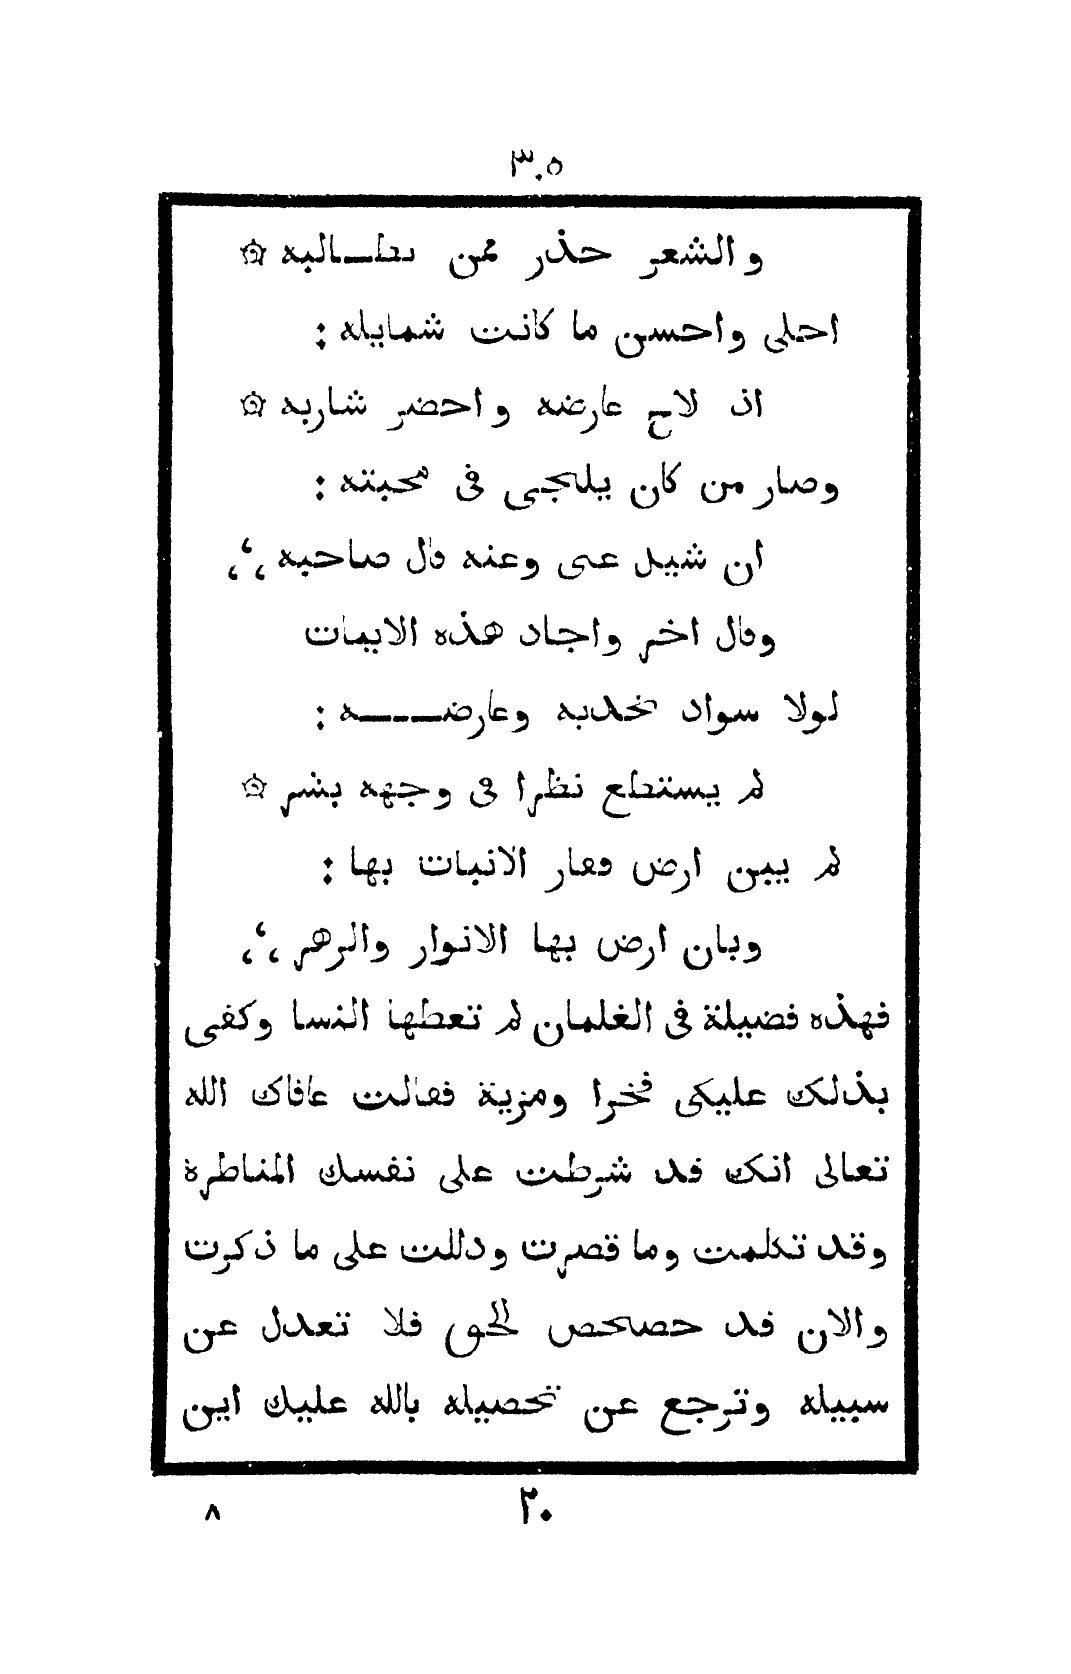 ٣٠٥
والشعر حذر ممن يطـالبه
احلى واحسن ما كانت شمايله :
اذ لاح عارضه واحضر شاربه
وصار من كان يلحجى فى محبته :
ان شيل عنى وعنه قال صاحبه
وقال اخر واجاد هذه الابيات
لولا سواد بخديه وعارضـــه :
لم يستطع نظرا فى وجهه بشر
لم يبن ارض قفار الانبات بها :
وبان ارض بها الانوار والزهر
فهذه فضيلة فى الغلمان لم تعطها النسا وكفى
بذلك عليكى فخرا ومزية فقالت عافاك الله
تعالى انك قد شرطت على نفسك المناظرة
وقد تكلمت وما قصرت ودللت على ما ذكرت
والان قد حصحص الحق فلا تعدل عن
سبيله وترجع عن تحصيله بالله عليك اين
٢٠
٨